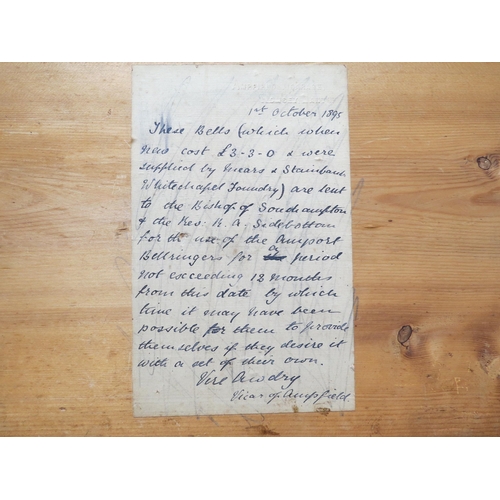 1st October 1895
These Bells (which when
new cost £3-3-0 & were
supplied by Mears & Stainbank
Whitechapel Foundry) are sent
to the Bishop of Southampton
& the Rev. K. A. Sidebottom
for the use of the Amport
Bellringers for a period
not exceeding 12 months
from this date by which
time it may have been
possible for them to provide
themselves if they desire it
with a set of their own.
Vere Awdry
Vicar of Ampfield